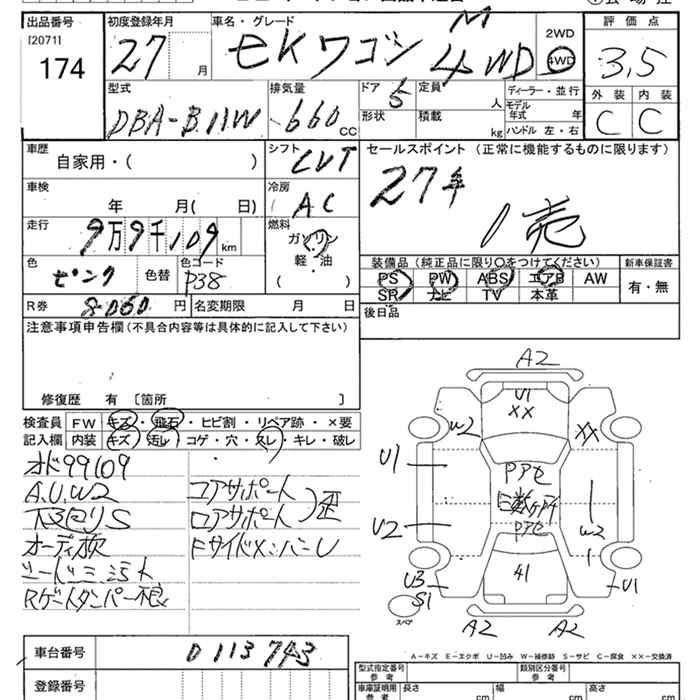 出品番号 初度登録年月 車名・グレード 評価点
[2071]
174
27 月
eKワゴン M 4WD
2WD
4WD
3.5
型式 排気量 ドア 定員 ディーラー・並行 外装 内装
DBA-B11W 660 CC 5 人
形状 積載 kg
モデル年式 年
ハンドル 左・右
C C
車歴 シフト セールスポイント (正常に機能するものに限ります)
自家用・( ) CVT
27年
1売
車検 冷房
年 月( 日) AC
走行 燃料
9万9千109 km
ガソリン
軽・油
( )
色 色替 色コード
ピンク P38
装備品 (純正品に限り○をつけてください) 新車保証書
PS PW ABS エアB AW
SR ナビ TV 本革
有・無
R券 8060 円 名変期限 月 日
後日品
注意事項申告欄(不具合内容等は具体的に記入して下さい)
修復歴 有 [箇所 ]
検査員 FW キズ・飛石・ヒビ割・リペア跡・×要
記入欄 内装 キズ・汚レ・コゲ・穴・スレ・キレ・破レ
オド99109
A.U.W2 コアサポート
下回りS ロアサポート 歪
オーディオ欠 FサイドメンバーU
シートシミ汚れ
Rゲートダンパー不良
A2
U1
XX
W2
XX
U1
Pアセ
ヒ数ヶ所
Pアセ
U2
W2
41
U3
S1
U1
スペア
A2
A2
A-キズ E-エクボ U-凹み W-補修跡 S-サビ C-腐食 XX-交換済
車台番号 0113743
登録番号
型式指定番号 参考 類別区分番号 参考
車庫証明用 参考 長さ cm 幅 cm 高さ cm